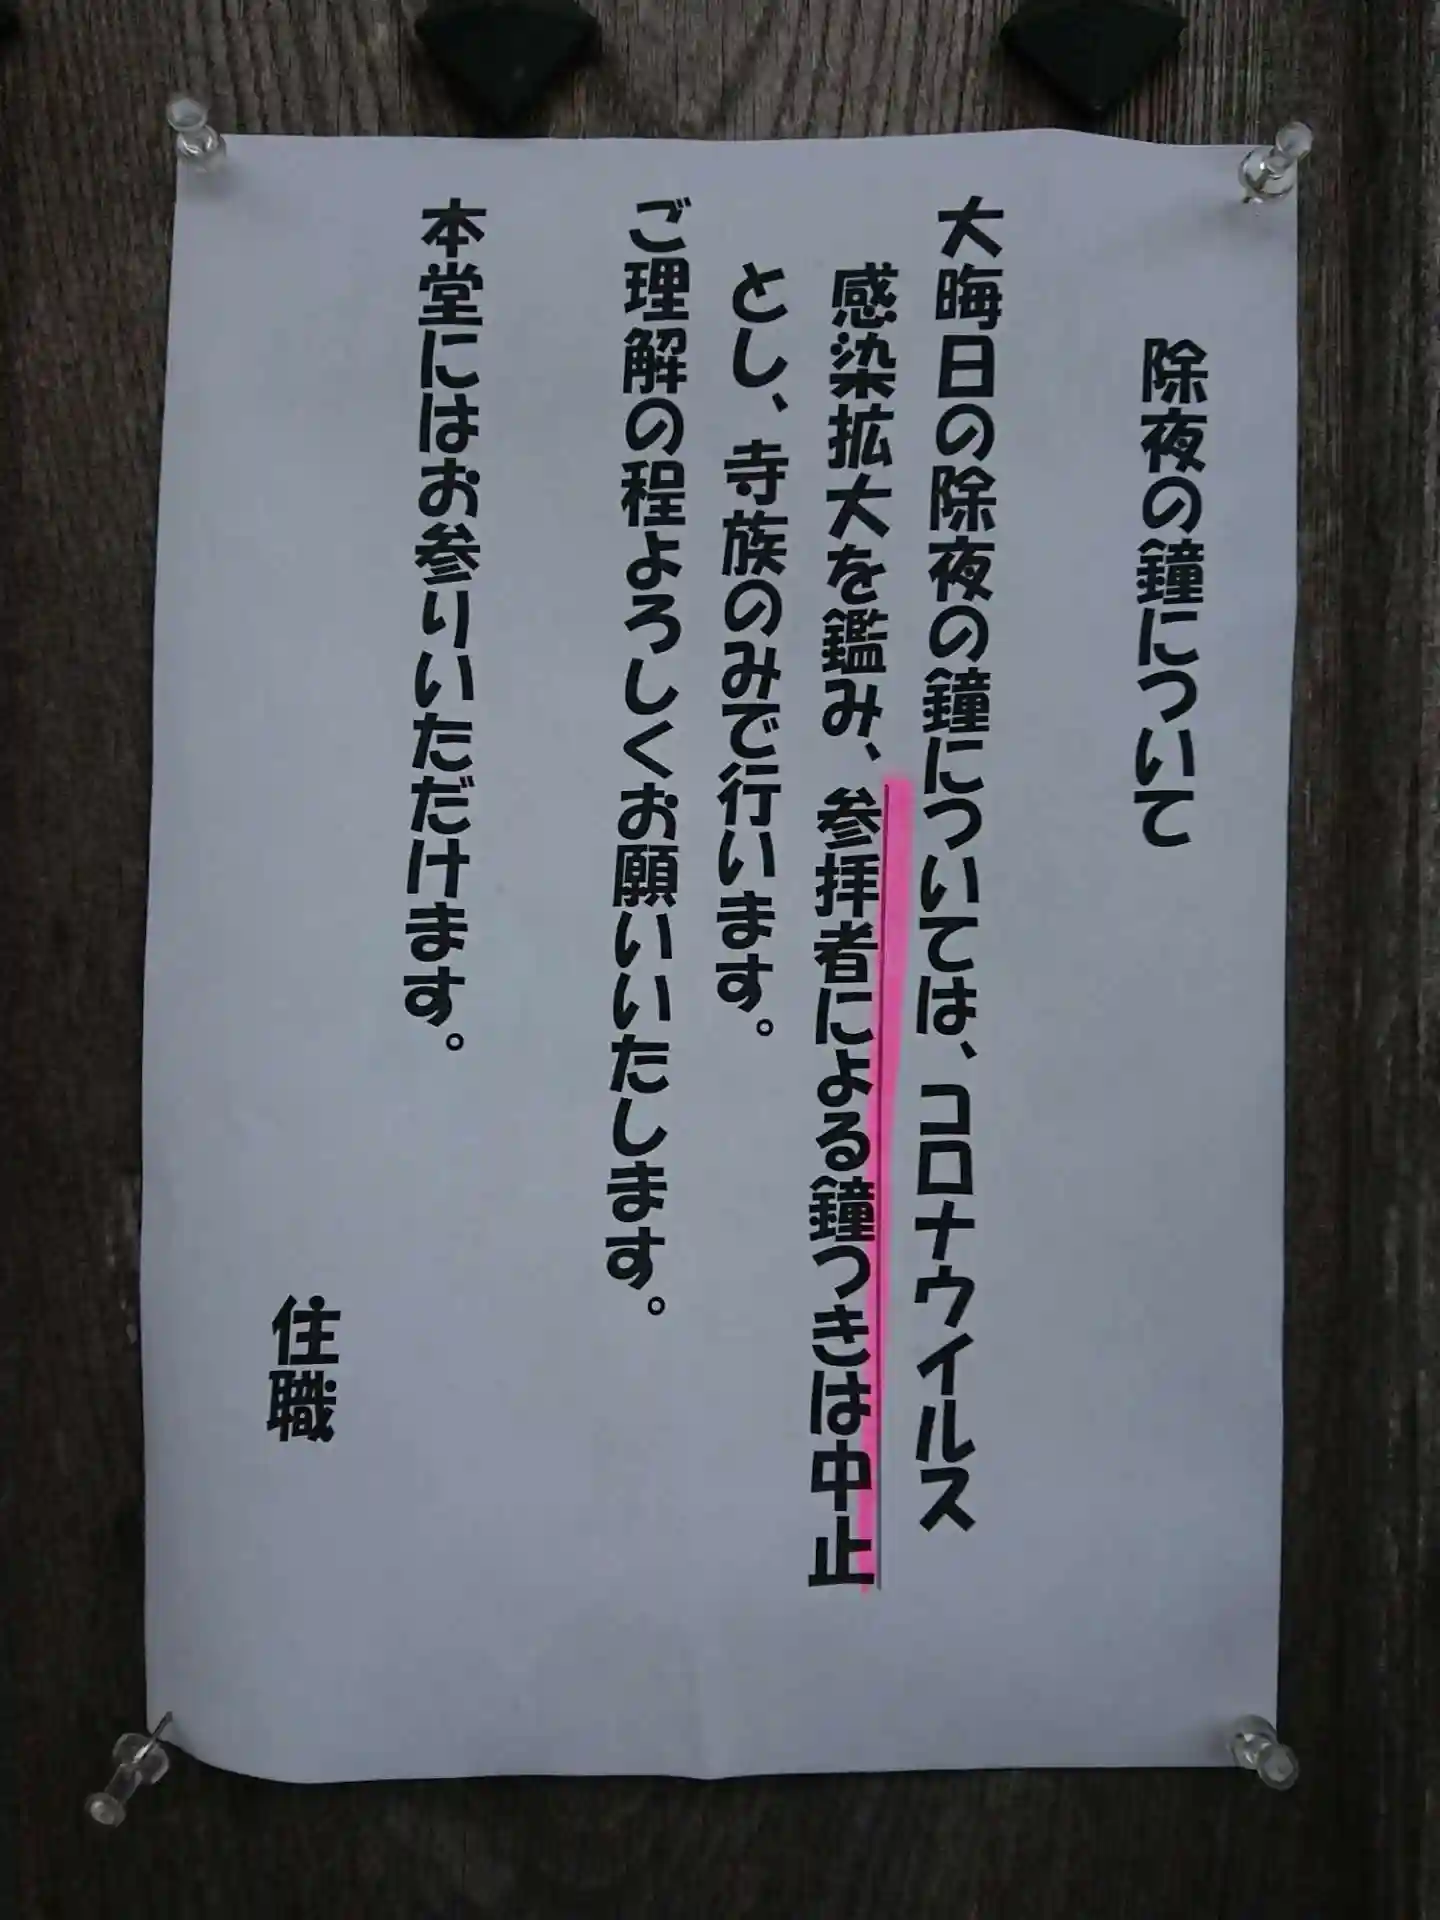 除夜の鐘について
大晦日の除夜の鐘については、コロナウイルス
感染拡大を鑑み、参拝者による鐘つきは中止
とし、寺族のみで行います。
ご理解の程よろしくお願いいたします。
本堂にはお参りいただけます。
住職